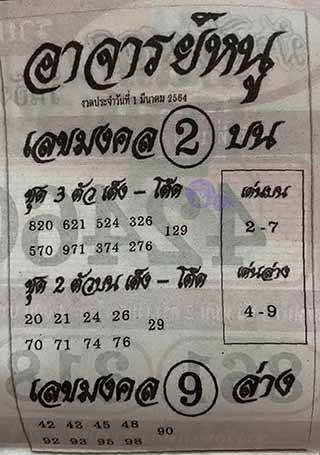 อาจารย์หนู
งวดประจำวันที่ 1 มีนาคม 2564
เลขมงคล 2 บน
ชุด 3 ตัว เต็ง – โต๊ด
820 621 524 326
129
570 971 374 276
เด่นบน
2 - 7
ชุด 2 ตัวบน เต็ง – โต๊ด
20 21 24 26
29
70 71 74 76
เด่นล่าง
4 - 9
เลขมงคล 9 ล่าง
42 43 45 48
90
92 93 95 98